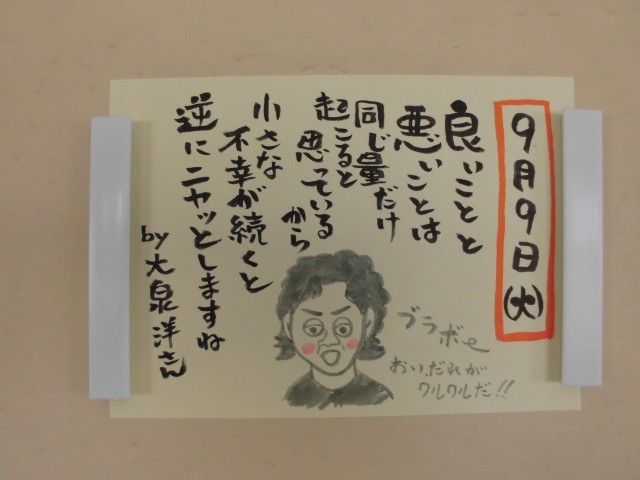 9月9日(火)
良いことと
悪いことは
同じ量だけ
起こると
思っている
から
小さな
不幸が続くと
逆にニヤッとしますね
by大泉洋さん
ブラボe
おい、だれが
クルクルだ!!